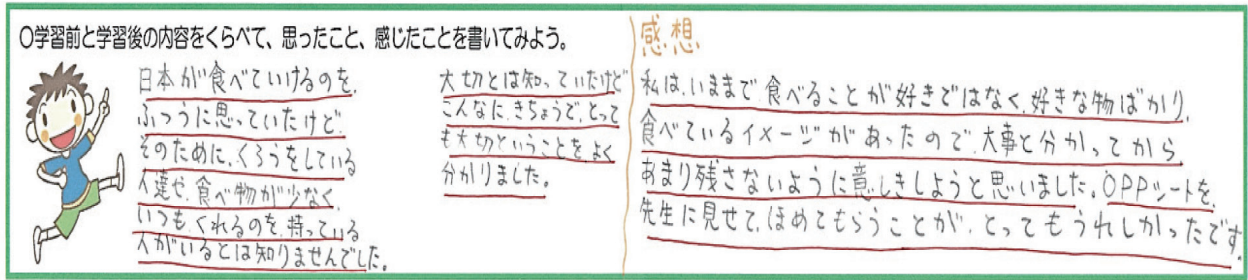 〇学習前と学習後の内容をくらべて、思ったこと、感じたことを書いてみよう。
日本が食べていけるのを、
ふつうに思っていたけど、
そのために、くろうをしている
人達や、食べ物が少なく、
いつも、くれるのを、持っている
人がいるとは知りませんでした。
大切とは知っていたけど
こんなに、きちょうで、とって
も大切ということをよく
分かりました。
感想
私は、いままで食べることが好きではなく、好きな物ばかり、
食べているイメージがあったので、大事と分かってから
あまり残さないように意しきしようと思いました。OPPシートを、
先生に見せて、ほめてもらうことが、とってもうれしかったです。